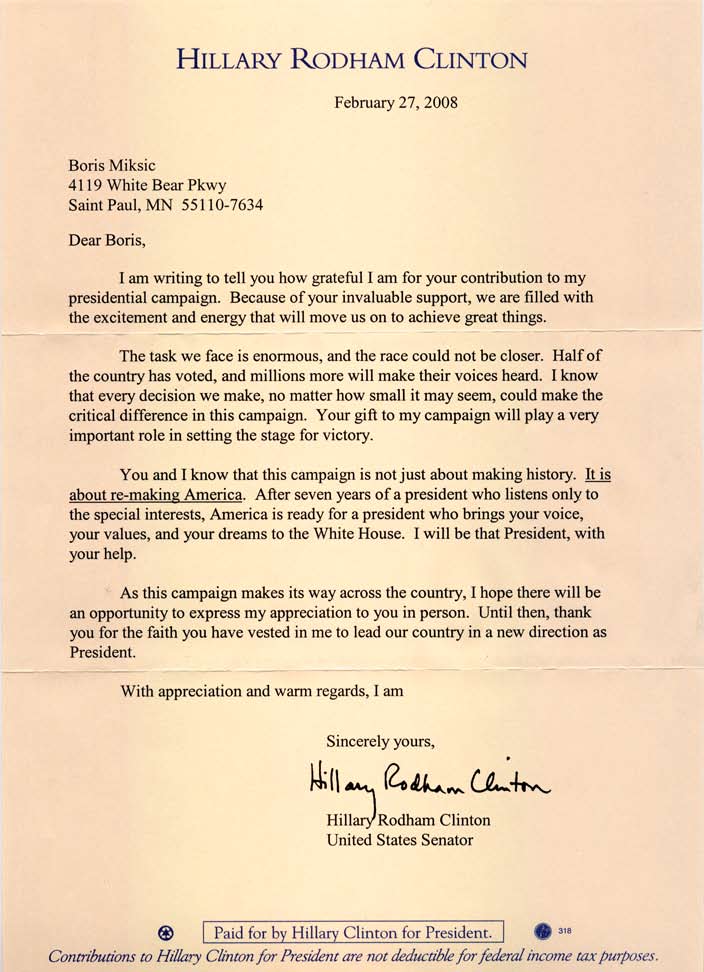 HILLARY RODHAM CLINTON
February 27, 2008
Boris Miksic
4119 White Bear Pkwy
Saint Paul, MN  55110-7634
Dear Boris,
I am writing to tell you how grateful I am for your contribution to my
presidential campaign.  Because of your invaluable support, we are filled with
the excitement and energy that will move us on to achieve great things.
The task we face is enormous, and the race could not be closer.  Half of
the country has voted, and millions more will make their voices heard.  I know
that every decision we make, no matter how small it may seem, could make the
critical difference in this campaign.  Your gift to my campaign will play a very
important role in setting the stage for victory.
You and I know that this campaign is not just about making history.  It is
about re-making America.  After seven years of a president who listens only to
the special interests, America is ready for a president who brings your voice,
your values, and your dreams to the White House.  I will be that President, with
your help.
As this campaign makes its way across the country, I hope there will be
an opportunity to express my appreciation to you in person.  Until then, thank
you for the faith you have vested in me to lead our country in a new direction as
President.
With appreciation and warm regards, I am
Sincerely yours,
Hillary Rodham Clinton
Hillary Rodham Clinton
United States Senator
Paid for by Hillary Clinton for President.
318
Contributions to Hillary Clinton for President are not deductible for federal income tax purposes.